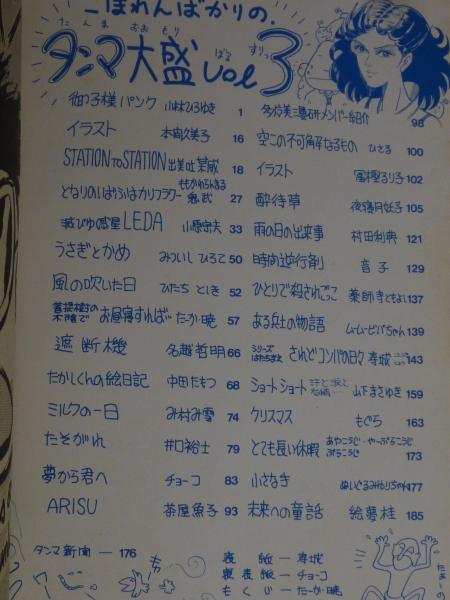 こぼれんばかりの、
たんま おおもり ばる すりっ
タンマ大盛 Vol 3
御子様パンク 小林ひろゆき 1
イラスト 本田久美子 16
STATION TO STATION 出美吐 18
となりのぱふぱふカリフラワー 27
滅びゆく惑星LEDA 小原 33
うさぎとかめ みついし ひろこ 50
風の吹いた日 ひたち としき 52
菩提樹の木陰で お昼寝すれば たーか・暁 57
遮断機 名越哲明 66
たかしくんの絵日記 中田たもつ 68
ミルクの一日 み村み雪 74
たそがれ 井口裕士 79
夢から君へ チョーコ 83
ARISU 茶屋魚子 93
タンマ新聞 — 176
メンバー紹介 98
空この不可解なるもの ひさる 100
イラスト るり子 102
酔待草 夜 月妖子 105
雨の日の出来事 村田利典 121
時間逆行剤 音子 129
ひとりで殺されごっこ 薬師寺ともよ 137
ある兵士の物語 ムームービバちゃん 139
シリーズ はたちまえ されどコンパの日々 寿城 143
ショートショート 山下まさゆき 159
クリスマス もぐら 163
とても長い休暇 あやこうじ・やーぷるこうじ 173
ぷるこうじ
小さなき ぬいぐるみゆりちゃん 177
未来への童話 絵夢桂 185
表紙 — 寿城
裏表紙 — チョーコ
もくじ — たーか・暁